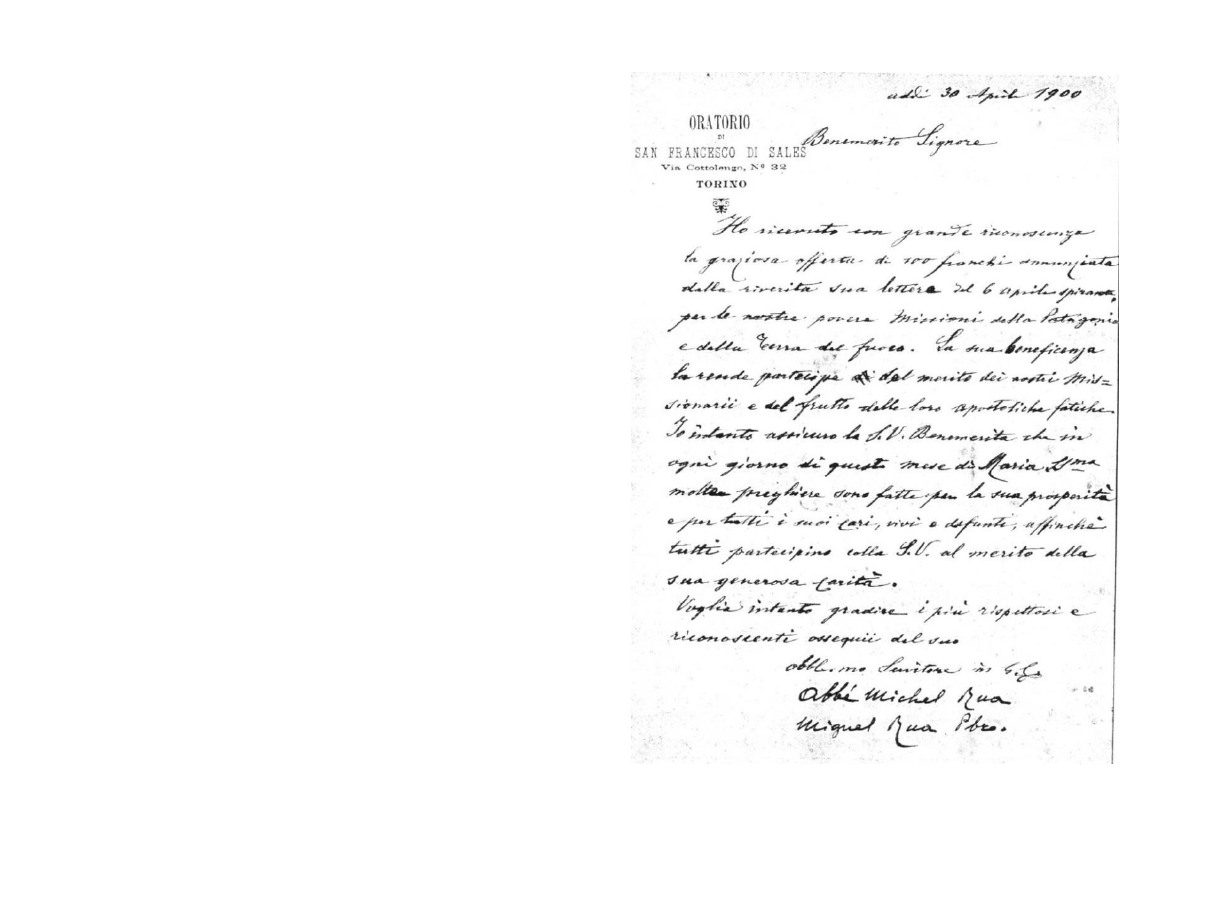 addì 30 Aprile 1900
ORATORIO
DI
SAN FRANCESCO DI SALES
Via Cottolengo, Nº 32
TORINO
Benemerito Signore
Ho ricevuto con grande riconoscenza
la graziosa offerta di 100 franchi annunziata
dalla riverita sua lettera del 6 aprile spirante,
per le nostre povere Missioni della Patagonia
e della Terra del fuoco. La sua beneficenza
la rende partecipe del merito dei nostri Mis=
sionarii e del frutto delle loro apostoliche fatiche.
Io intanto assicuro la S.V. Benemerita che in
ogni giorno di questo mese di Maria SSma
molte preghiere sono fatte per la sua prosperità
e per tutti i suoi cari, vivi e defunti, affinchè
tutti partecipino colla S.V. al merito della
sua generosa carità.
Voglia intanto gradire i più rispettosi e
riconoscenti ossequii del suo
obbl.mo Servitore in G.C.
Abbé Michel Rua
Miguel Rua Pbro.